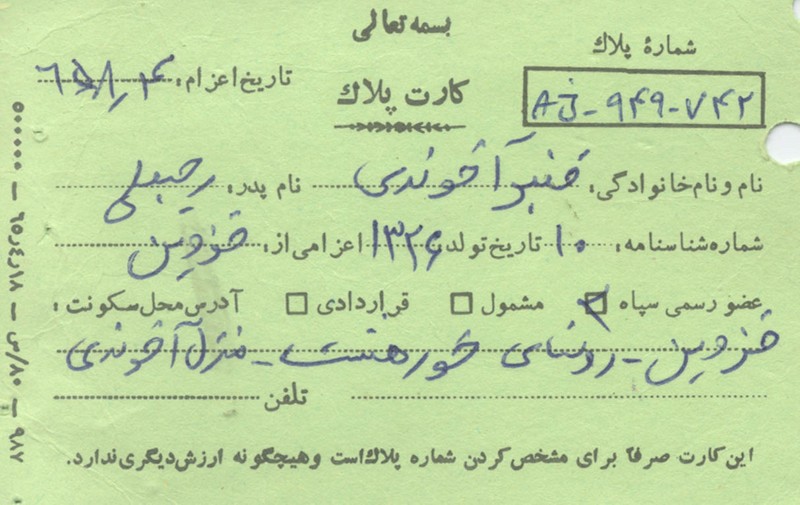 بسمه تعالی
شمارهٔ پلاك
AJ-۹۴۹-۷۴۲
کارت پلاك
تاریخ اعزام: ۶۵/۸/۴
نام و نام خانوادگی: قنبر آخوندی نام پدر: رجبعلی
شماره شناسنامه: ۱۰ تاریخ تولد ۱۳۲۶ اعزامی از: قزوین
عضو رسمی سپاه مشمول قراردادی آدرس محل سکونت:
قزوین - روستای خورهشت - منزل آخوندی
تلفن
این کارت صرفاً برای مشخص کردن شماره پلاك است و هیچگونه ارزش دیگری ندارد.
۵۰۰۰۰۰ - ۶۵ر۴ر۱۸ - س/۸۰ - ۹۸۷